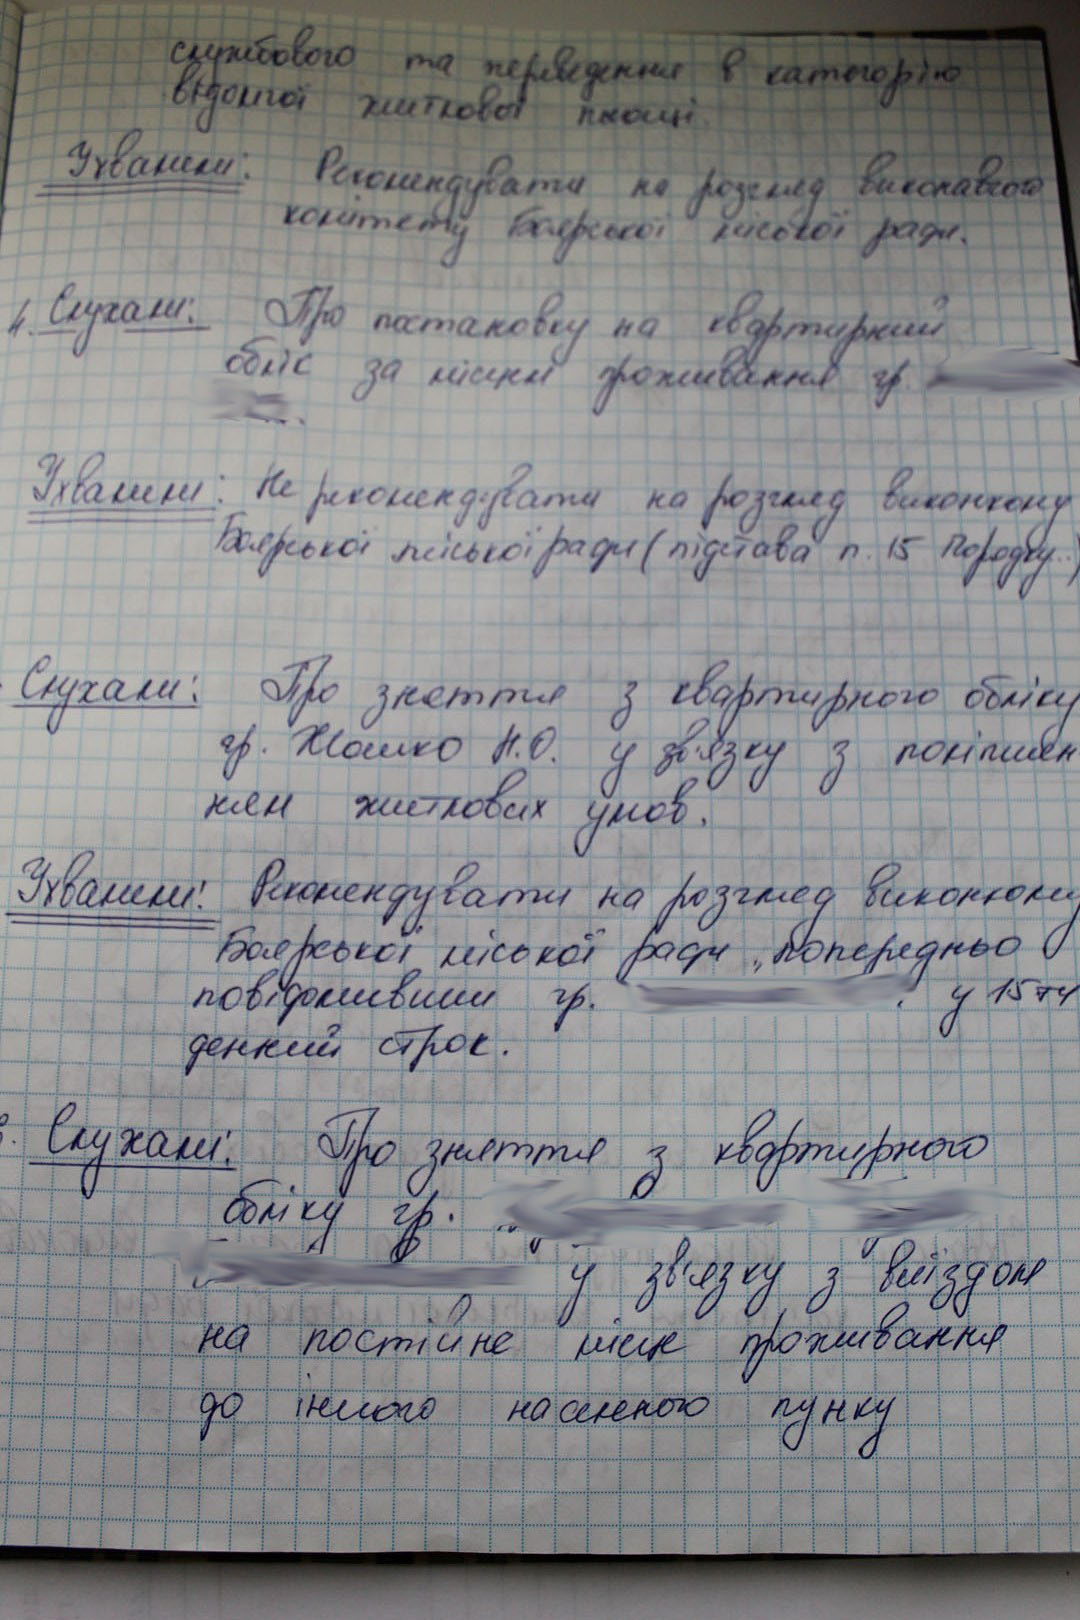 службового та переведення в категорію
відомчої житлової площі.
Ухвалили: Рекомендувати на розгляд виконавчого
комітету Боярської міської ради.
4. Слухали: Про постановку на квартирний
облік за місцем проживання гр.
Ухвалили: Не рекомендувати на розгляд виконкому
Боярської міської ради (підстава п. 15 Порядку..)
Слухали: Про зняття з квартирного обліку
гр. Жошко Н.О. у зв'язку з поліпшен
ням житлових умов.
Ухвалили: Рекомендувати на розгляд виконкому
Боярської міської ради, попередньо
повідомивши гр. у 15ти
денний строк.
Слухали: Про зняття з квартирного
обліку гр.
у зв'язку з виїздом
на постійне місце проживання
до іншого населеного пунку